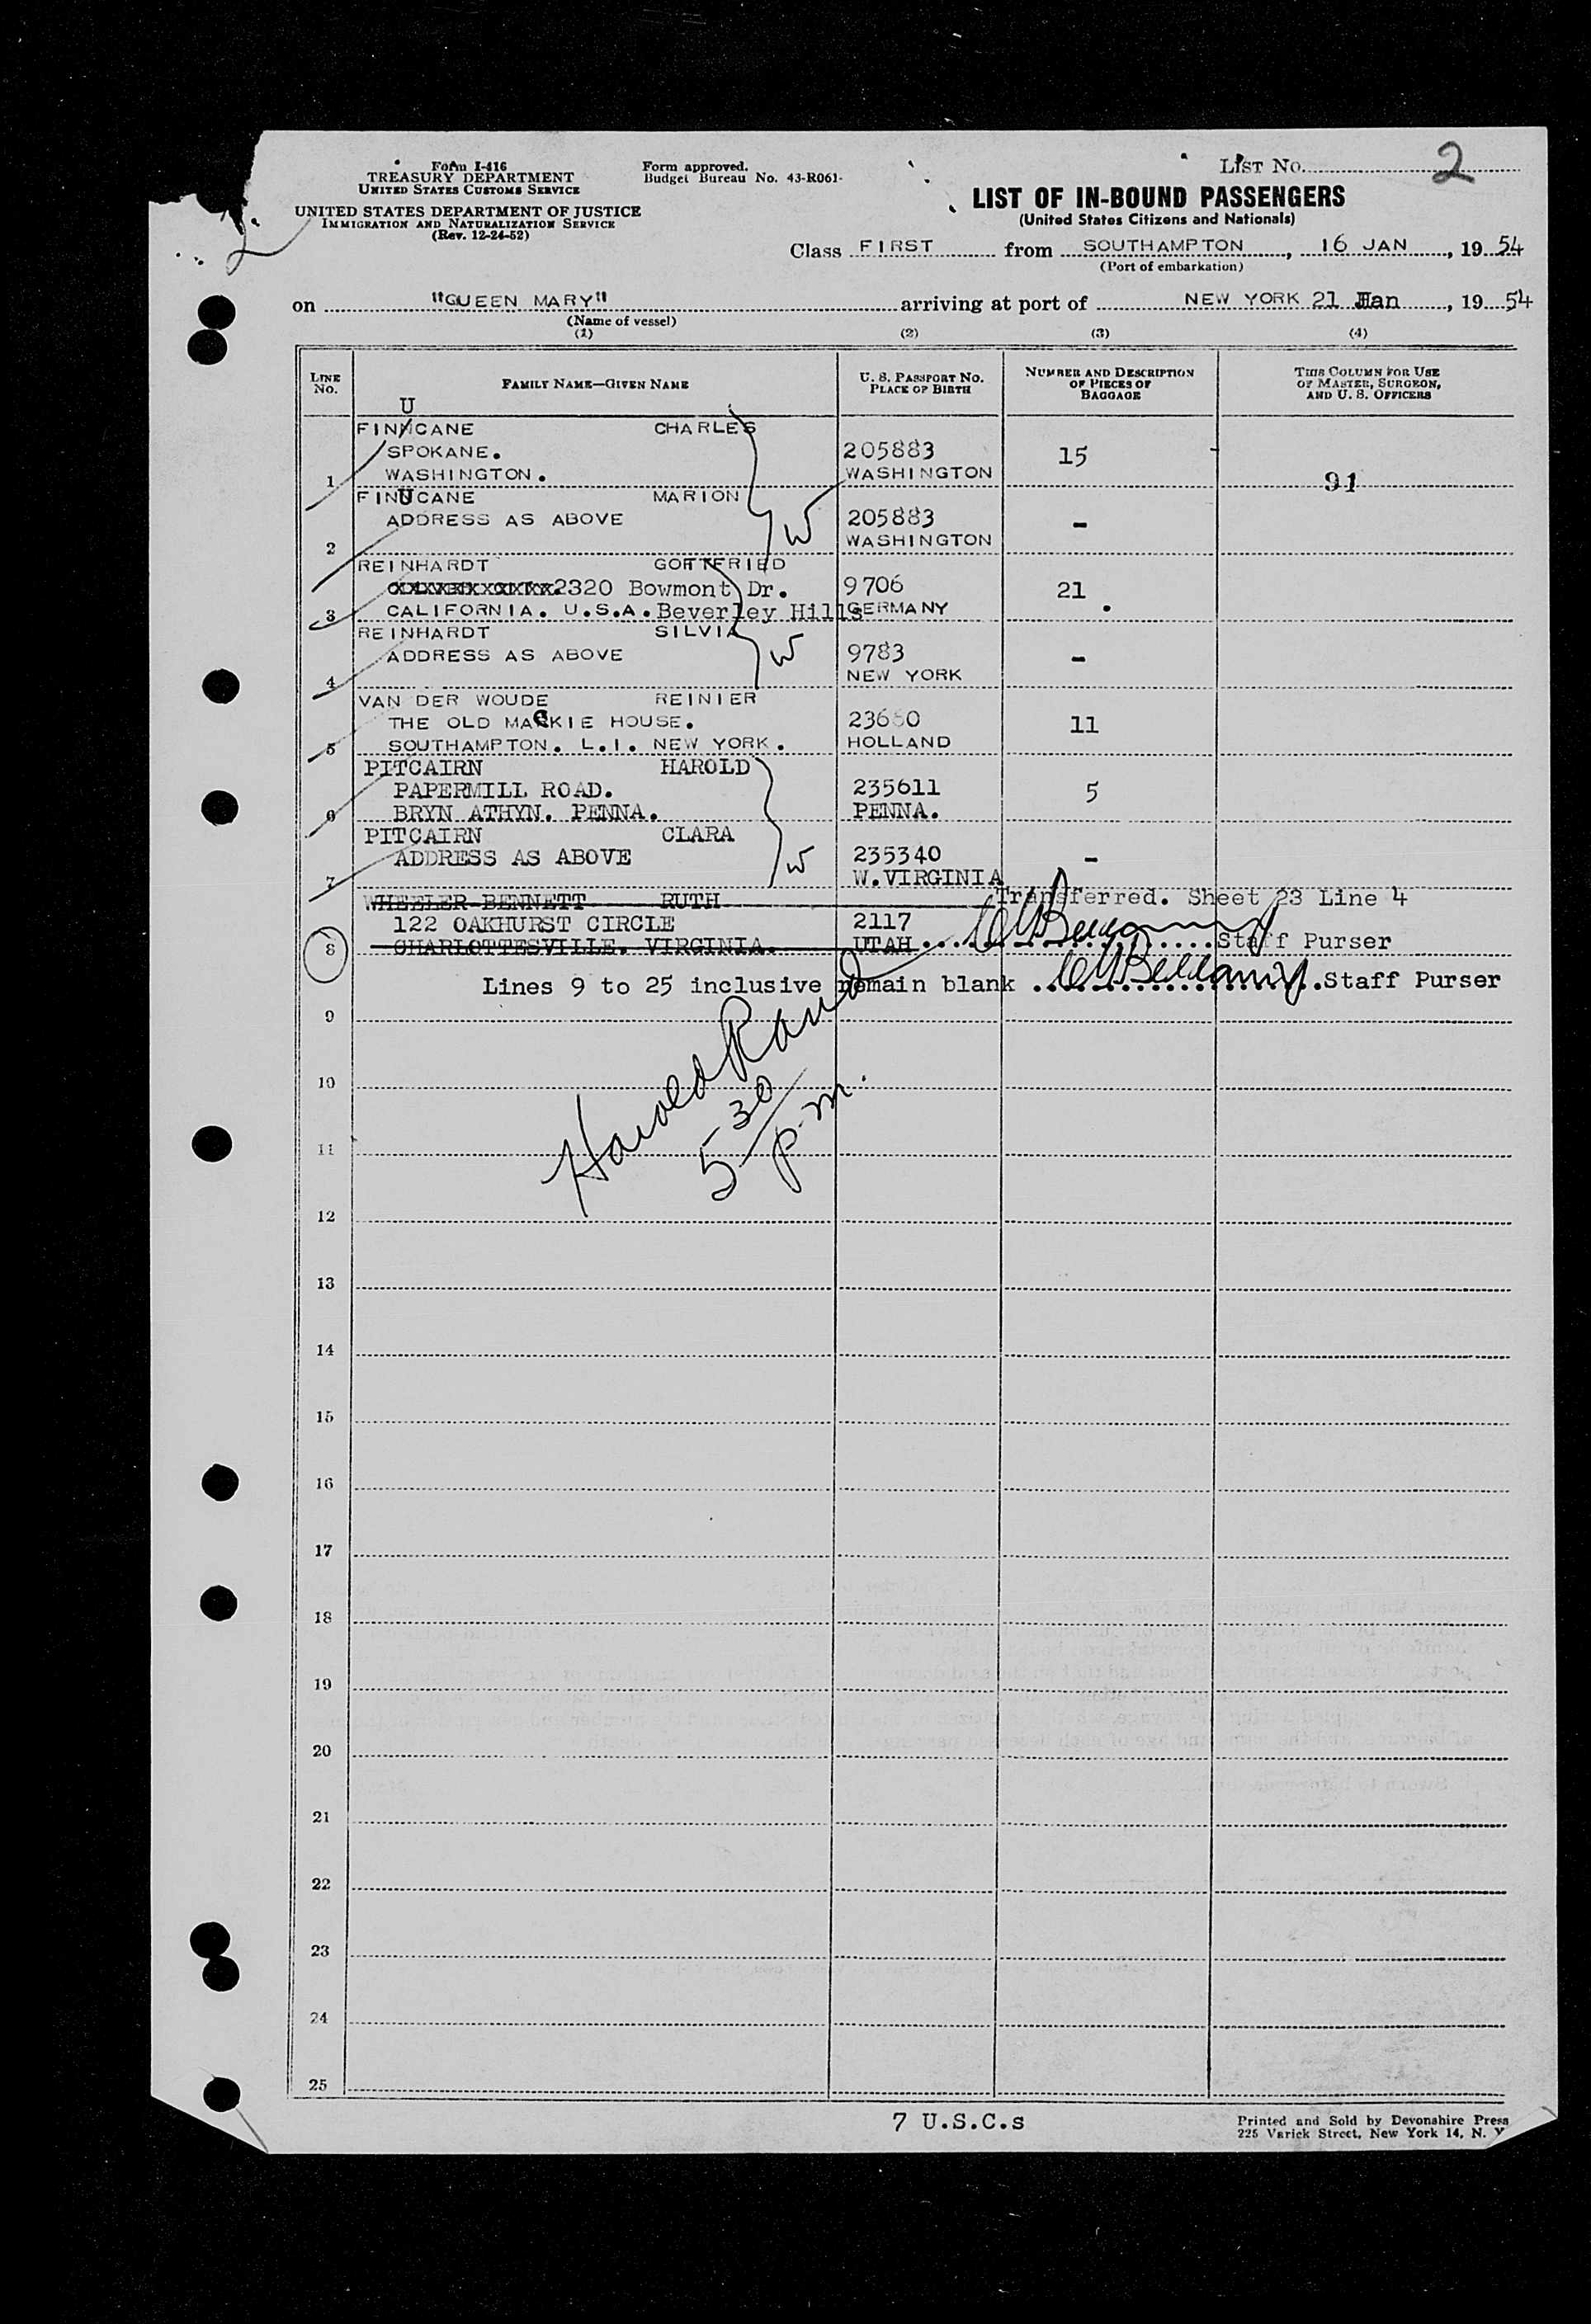 Form I-416
TREASURY DEPARTMENT
UNITED STATES CUSTOMS SERVICE
UNITED STATES DEPARTMENT OF JUSTICE
IMMIGRATION AND NATURALIZATION SERVICE
(Rev. 12-24-52)
Form approved.
Budget Bureau No. 43-R061-
LIST No. 2
LIST OF IN-BOUND PASSENGERS
(United States Citizens and Nationals)
Class FIRST from SOUTHAMPTON, 16 JAN, 19 54
(Port of embarkation)
on "QUEEN MARY" arriving at port of NEW YORK 21 Jan, 19 54
(Name of vessel)
(1) (2) (3) (4)
LINE No. FAMILY NAME—GIVEN NAME U. S. PASSPORT No. PLACE OF BIRTH NUMBER AND DESCRIPTION OF PIECES OF BAGGAGE THIS COLUMN FOR USE OF MASTER, SURGEON, AND U. S. OFFICERS
U
FINNCANE CHARLES
SPOKANE. 205883 15
1 WASHINGTON. WASHINGTON 91
FINUCANE MARION
ADDRESS AS ABOVE 205883 -
2 WASHINGTON
W
REINHARDT GOTTFRIED
2320 Bowmont Dr. 9706 21
3 CALIFORNIA. U.S.A. Beverley Hills GERMANY
REINHARDT SILVIA
ADDRESS AS ABOVE W 9783 -
4 NEW YORK
VAN DER WOUDE REINIER
THE OLD MACKIE HOUSE. 11
5 SOUTHAMPTON. L.I. NEW YORK. HOLLAND
PITCAIRN HAROLD
PAPERMILL ROAD. 235611 5
6 BRYN ATHYN. PENNA. PENNA.
PITCAIRN CLARA
ADDRESS AS ABOVE W 235340 -
7 W.VIRGINIA
WHEELER-BENNETT RUTH Transferred. Sheet 23 Line 4
122 OAKHURST CIRCLE 2117
8 CHARLOTTESVILLE. VIRGINIA. UTAH Staff Purser
Lines 9 to 25 inclusive remain blank Staff Purser
9
Harold Rand
10
5 30 p.m.
11
12
13
14
15
16
17
18
19
20
21
22
23
24
25
7 U.S.C.s
Printed and Sold by Devonshire Press
225 Varick Street, New York 14, N. Y